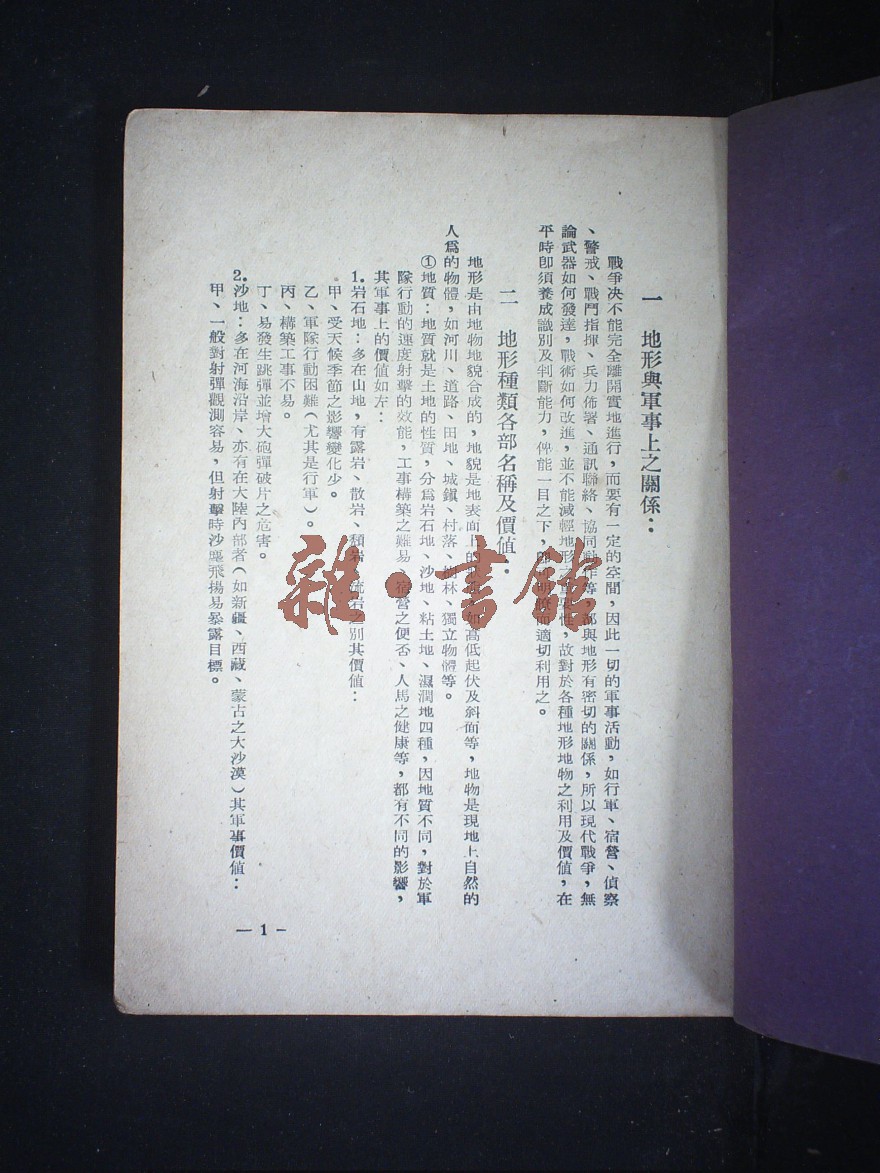 一 地形與軍事上之關係：
戰爭決不能完全離開實地進行，而要有一定的空間，因此一切的軍事活動，如行軍、宿營、偵察
、警戒、戰鬥指揮、兵力佈署、通訊聯絡、協同動作等，都與地形有密切的關係，所以現代戰爭，無
論武器如何發達，戰術如何改進，並不能減輕地形之重要性，故對於各種地形地物之利用及價值，在
平時卽須養成識別及判斷能力，俾能一目之下，明瞭而適切利用之。
二 地形種類各部名稱及價值：
地形是由地物地貌合成的，地貌是地表面上的 如高低起伏及斜面等，地物是現地上自然的
人爲的物體，如河川、道路、田地、城鎭、村落、樹林、獨立物體等。
①地質：地質就是土地的性質，分爲岩石地、沙地、粘土地、濕潤地四種，因地質不同，對於軍
隊行動的速度射擊的效能，工事構築之難易，宿營之便否、人馬之健康等，都有不同的影響，
其軍事上的價值如左：
1.岩石地：多在山地，有露岩、散岩、頽岩、流岩之別其價值：
甲、受天候季節之影響變化少。
乙、軍隊行動困難（尤其是行軍）。
丙、構築工事不易。
丁、易發生跳彈並增大砲彈破片之危害。
2.沙地：多在河海沿岸、亦有在大陸內部者（如新疆、西藏、蒙古之大沙漠）其軍事價值：
甲、一般對射彈觀測容易，但射擊時沙塵飛揚易暴露目標。
— 1 —
雜·書館